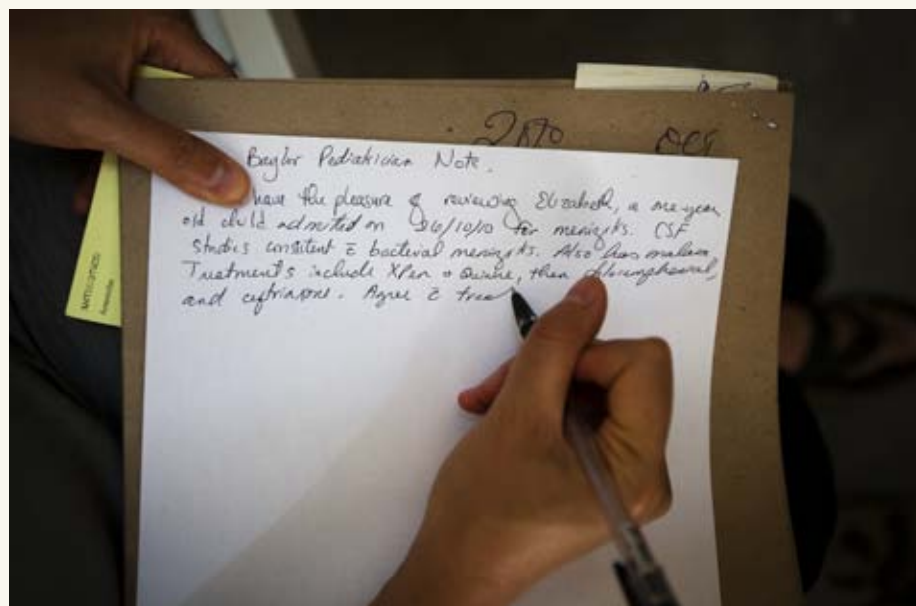 2870
Baylor Pediatrician Note.
have the pleasure of reviewing Elizabeth, a one year
old child admitted on 26/10/10 for meningitis. CSF
studies consistent c̄ bacterial meningitis. Also has malaria
Treatments include XPen + Quinine, then chloramphenicol,
and ceftriaxone. Agree c̄ trea